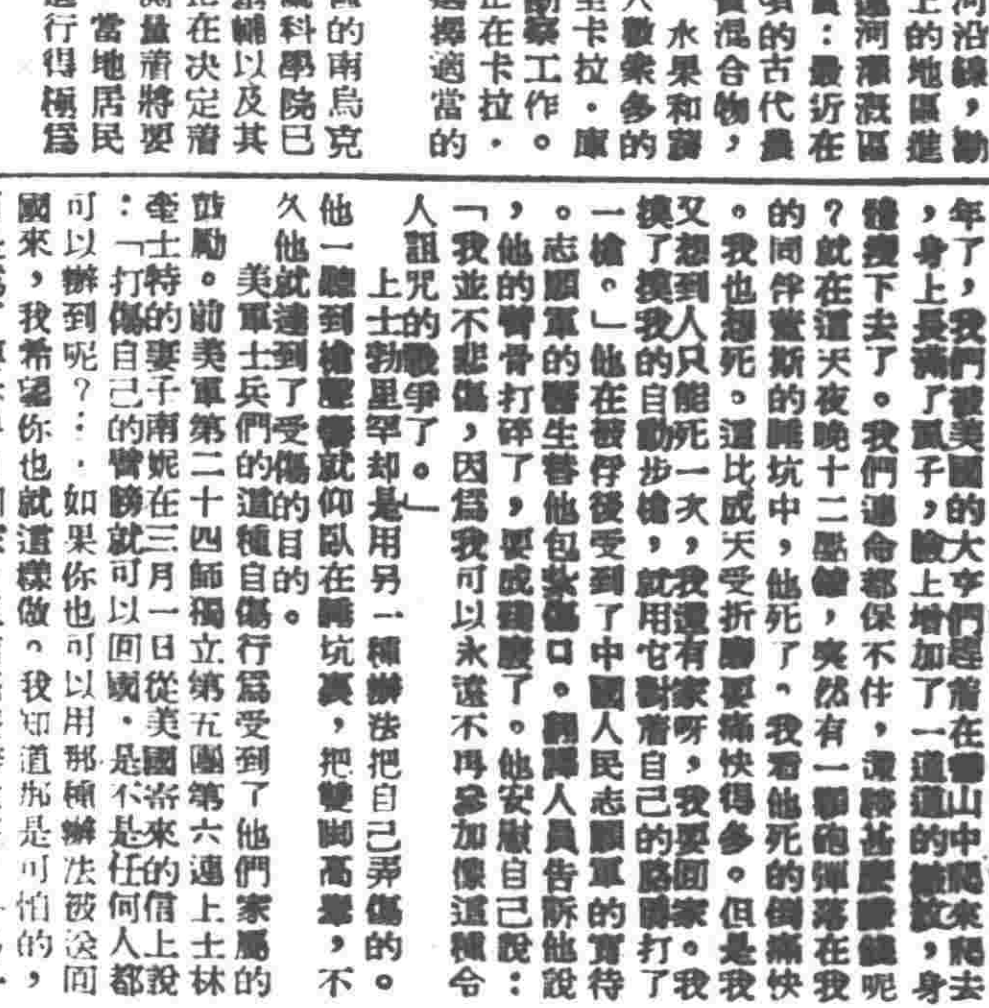 河沿線，勘
上的地區進
遠河灌溉區
：最近在
的古代農
混合物，
水果和藷
數衆多的
里卡拉・庫
勘察工作。
正在卡拉・
選擇適當的
的南烏克
科學院已
輔以及其
在決定着
測量着將要
當地居民
行得極爲
年了，我們被美國的大亨們趕着在山中爬來爬去
，身上長滿了虱子，臉上增加了一道道的皺紋，身
體瘦下去了。我們連命都保不住，還談甚麽賺錢呢
？就在這天夜晚十二點鐘，突然有一顆砲彈落在我
的同伴藍斯的睡坑中，他死了。我看他死的倒痛快
。我也想死。這比成天受折磨要痛快得多。但是我
又想到人只能死一次，我還有家呀，我要回家。我
摸了摸我的自動步槍，就用它對着自己的胳膊打了
一槍。」他在被俘後受到了中國人民志願軍的寬待
。志願軍的醫生替他包紮傷口。翻譯人員告訴他說
，他的臂骨打碎了，要成殘廢了。他安慰自己說：
「我並不悲傷，因爲我可以永遠不再參加像這種令
人詛咒的戰爭了。」
上士勃里罕却是用另一種辦法把自己弄傷的。
他一聽到槍聲響就仰臥在睡坑裏，把雙脚高舉，不
久他就達到了受傷的目的。
美軍士兵們的這種自傷行爲受到了他們家屬的
鼓勵。前美軍第二十四師獨立第五團第六連上士林
奎士特的妻子南妮在三月一日從美國寄來的信上說
：「打傷自己的臂膀就可以回國，是不是任何人都
可以辦到呢？…・如果你也可以用那種辦法被送回
國來，我希望你也就這樣做。我知道那是可怕的，